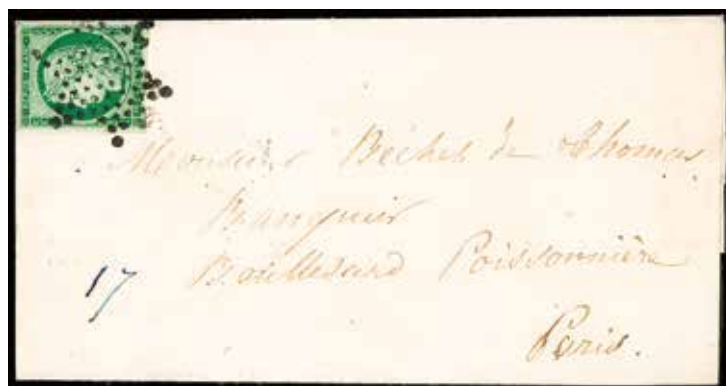 Monsieur Béchet de Thomas
Banquier
17 Boullevard Poissonnière
Paris.